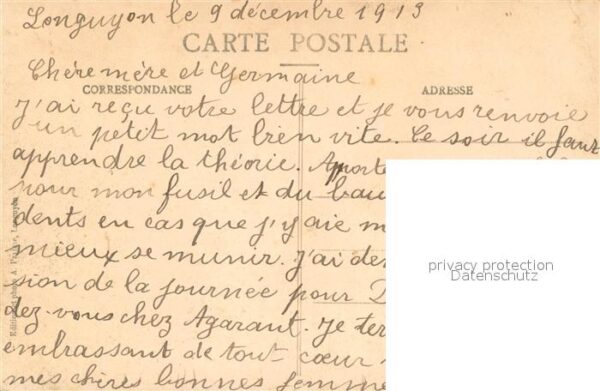 Longuyon le 9 décembre 1913
CARTE POSTALE
Chère mère et Germaine
CORRESPONDANCE
ADRESSE
J'ai reçu votre lettre et je vous renvoie
un petit mot bien vite. Ce soir il faut
apprendre la théorie. Apporte
pour mon fusil et du bau
dents en cas que j'y aie m
mieux se munir. J'ai de
sion de la journée pour D
dez-vous chez Agarant. Je ter
embrassant de tout cœur
mes chères bonnes femme
privacy protection
Datenschutz